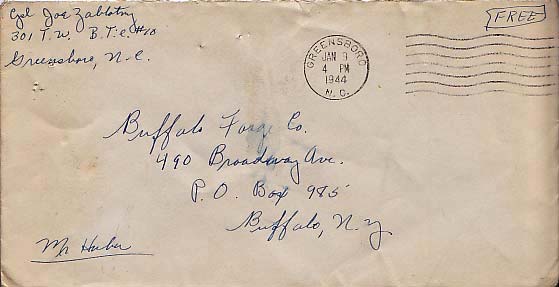 Cpl Joe Zablotny
301 T.W. B.T.C. #10
Greensboro, N.C.
FREE
GREENSBORO
JAN 9
4 PM
1944
N.C.
Buffalo Forge Co.
490 Broadway Ave.
P.O. Box 985
Buffalo, N.Y
Mr Harber